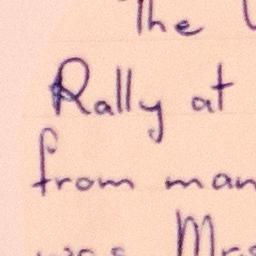 The
Rally at
from man
was Mrs